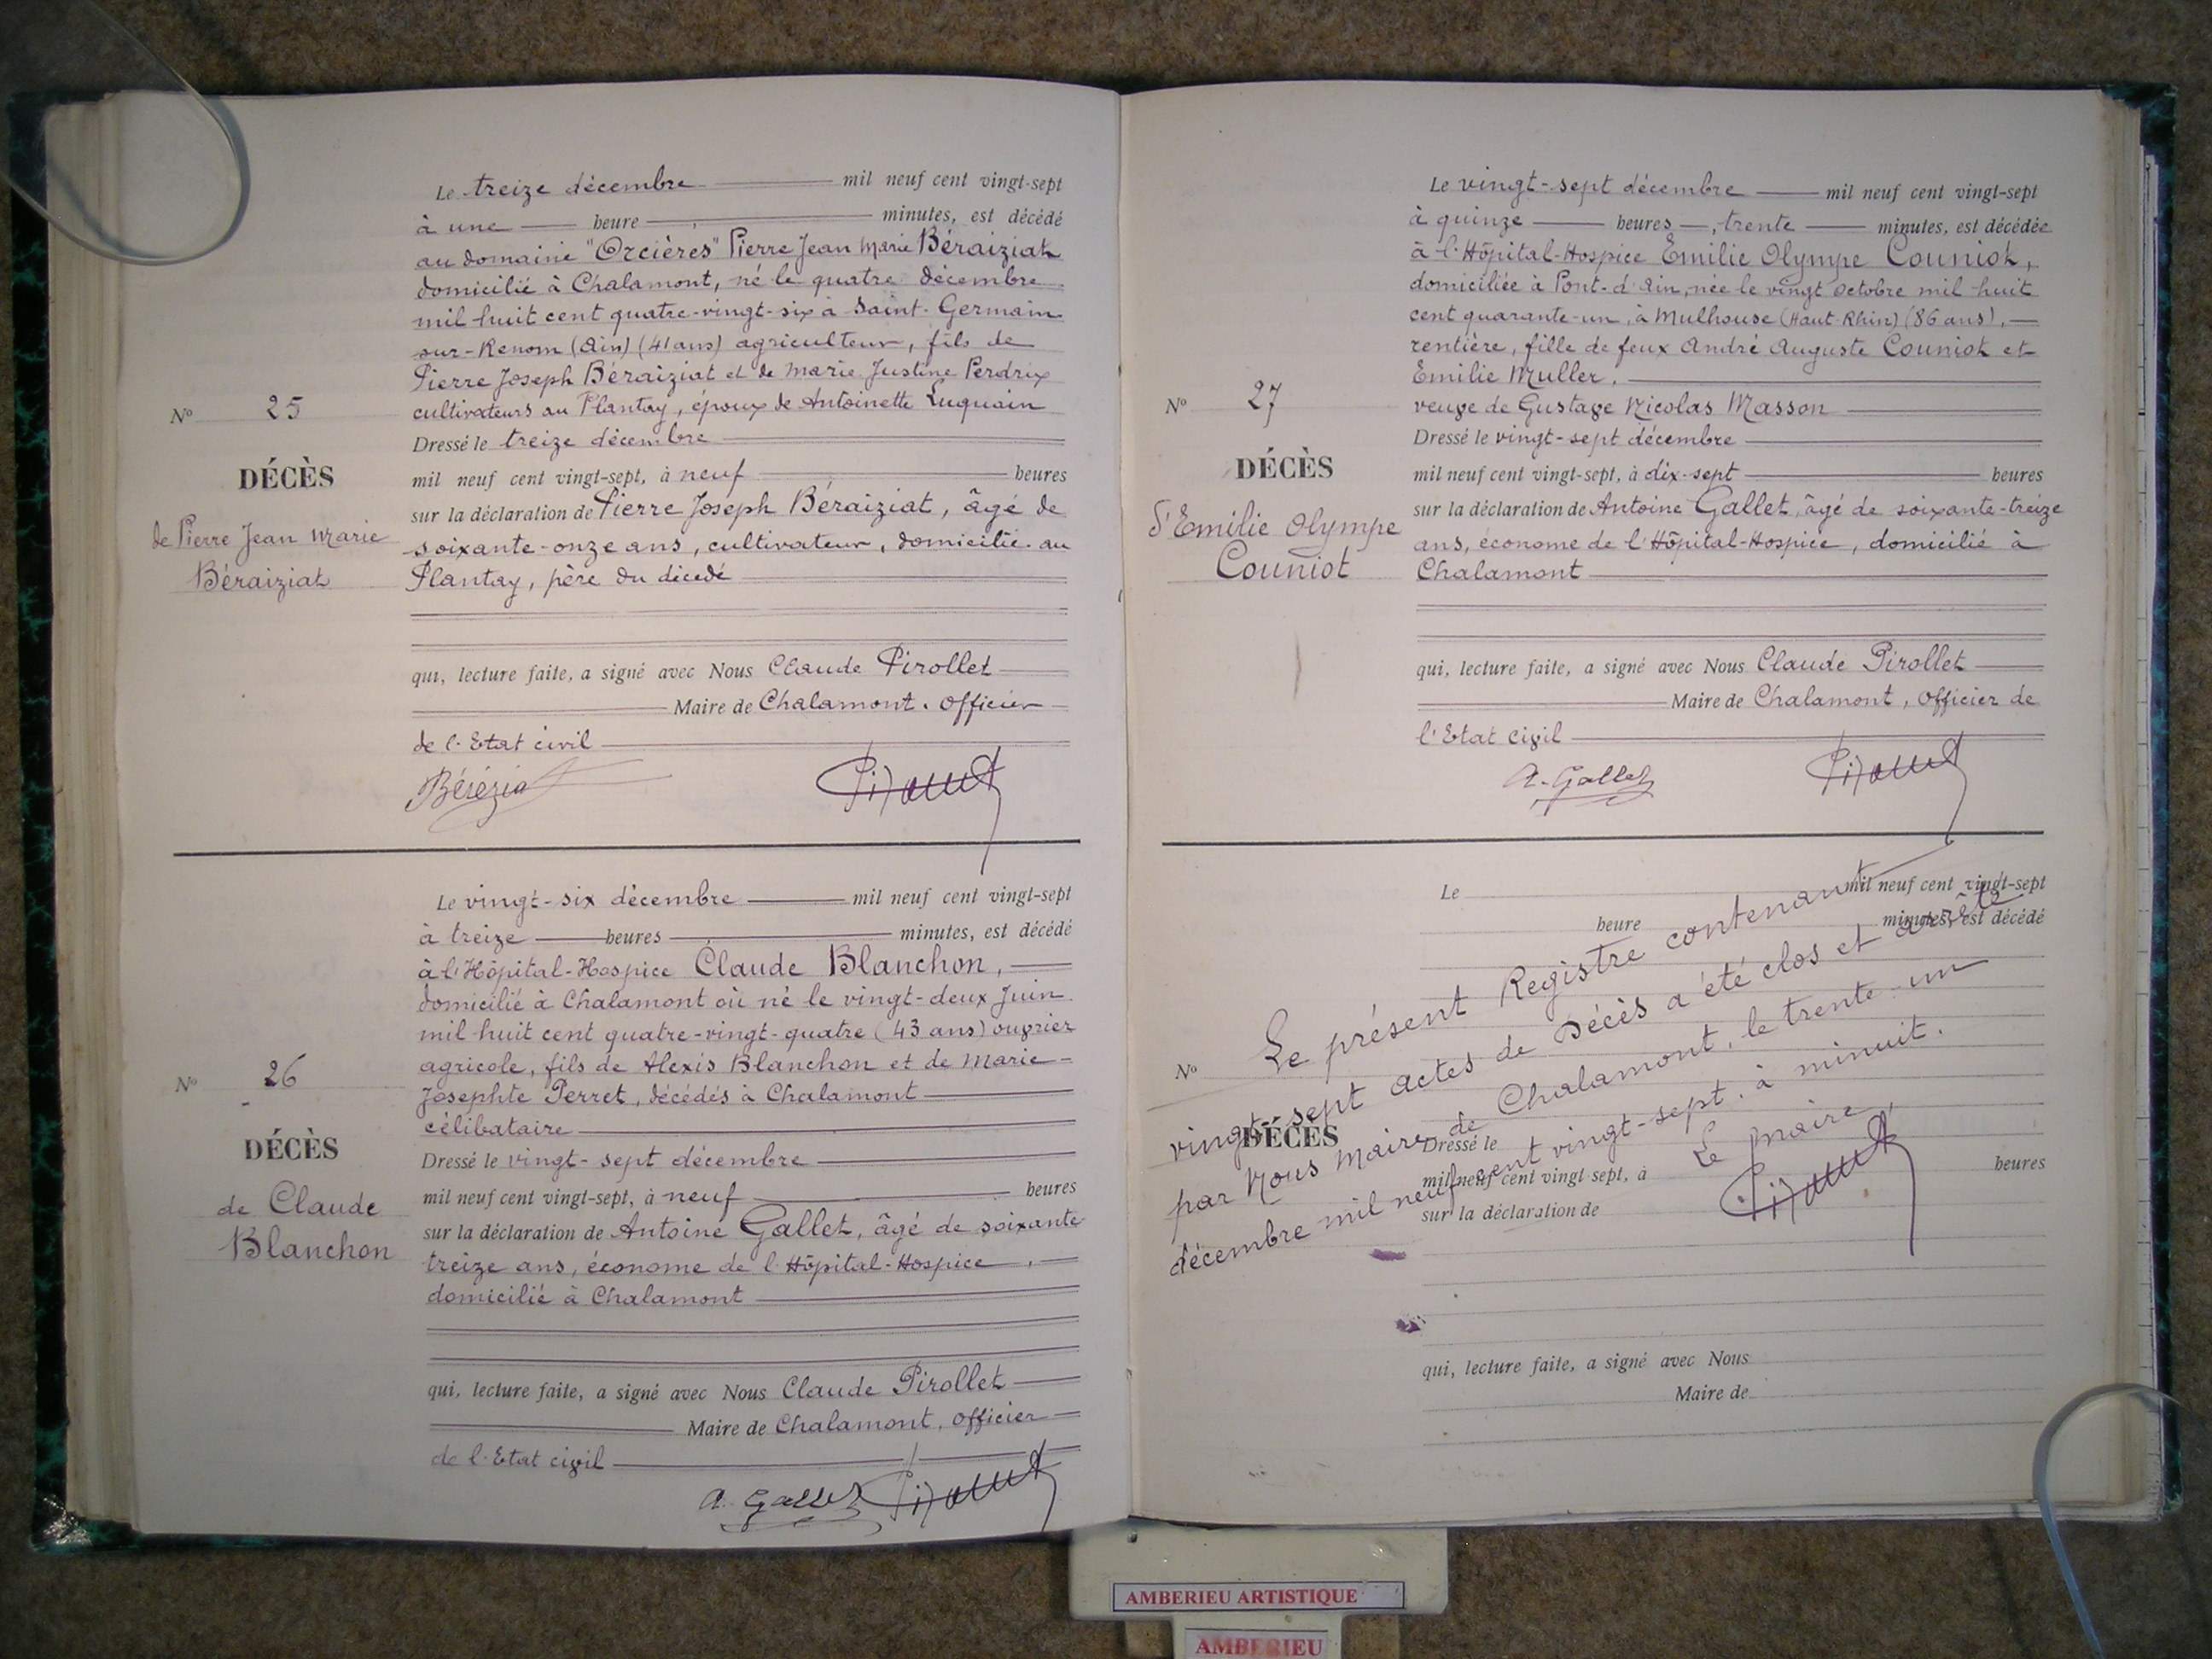 Le treize décembre mil neuf cent vingt-sept
à une heure minutes, est décédé
au domaine "Orcières" Pierre Jean Marie Béraiziat
domicilié à Chalamont, né le quatre décembre
mil huit cent quatre-vingt-six à Saint-Germain
sur-Renom (Ain) (41 ans) agriculteur, fils de
Pierre Joseph Béraiziat et de Marie Justine Perdrix
cultivateurs au Plantay, époux de Antoinette Luquain
Dressé le treize décembre
mil neuf cent vingt-sept, à neuf heures
sur la déclaration de Pierre Joseph Béraiziat, âgé de
soixante-onze ans, cultivateur, domicilié au
Plantay, père du décédé
qui, lecture faite, a signé avec Nous Claude Pirollet
Maire de Chalamont, Officier
de l'Etat civil
Pirollet
N° 25
DÉCÈS
de Pierre Jean Marie
Béraiziat
Le vingt-six décembre mil neuf cent vingt-sept
à treize heures minutes, est décédé
à l'Hôpital-Hospice Claude Blanchon,
domicilié à Chalamont où né le vingt-deux Juin
mil huit cent quatre-vingt-quatre (43 ans) ouvrier
agricole, fils de Alexis Blanchon et de Marie
Josephte Perret, décédés à Chalamont
célibataire
Dressé le vingt-sept décembre
mil neuf cent vingt-sept, à neuf heures
sur la déclaration de Antoine Gallet, âgé de soixante
treize ans, économe de l'Hôpital-Hospice,
domicilié à Chalamont
qui, lecture faite, a signé avec Nous Claude Pirollet
Maire de Chalamont, Officier
de l'Etat civil
A. Gallet Pirollet
N° 26
DÉCÈS
de Claude
Blanchon
Le vingt-sept décembre mil neuf cent vingt-sept
à quinze heures, trente minutes, est décédée
à l'Hôpital-Hospice Emilie Olympe Couniot,
domiciliée à Pont-d'Ain, née le vingt Octobre mil huit
cent quarante-un, à Mulhouse (Haut-Rhin) (86 ans),
rentière, fille de feux André Auguste Couniot et
Emilie Muller,
veuve de Gustave Nicolas Masson
Dressé le vingt-sept décembre
mil neuf cent vingt-sept, à dix-sept heures
sur la déclaration de Antoine Gallet, âgé de soixante-treize
ans, économe de l'Hôpital-Hospice, domicilié à
Chalamont
qui, lecture faite, a signé avec Nous Claude Pirollet
Maire de Chalamont, Officier de
l'Etat civil
A. Gallet Pirollet
N° 27
DÉCÈS
d'Emilie Olympe
Couniot
Le mil neuf cent vingt-sept
heure minutes, est décédé
N°
DÉCÈS
Dressé le
mil neuf cent vingt-sept, à heures
sur la déclaration de
qui, lecture faite, a signé avec Nous
Maire de
Le présent Registre contenant
vingt-sept actes de Décès a été clos et arrêté
par Nous Maire de Chalamont, le trente-un
décembre mil neuf cent vingt-sept, à minuit.
Le Maire,
Pirollet
AMBERIEU ARTISTIQUE
AMBERIEU